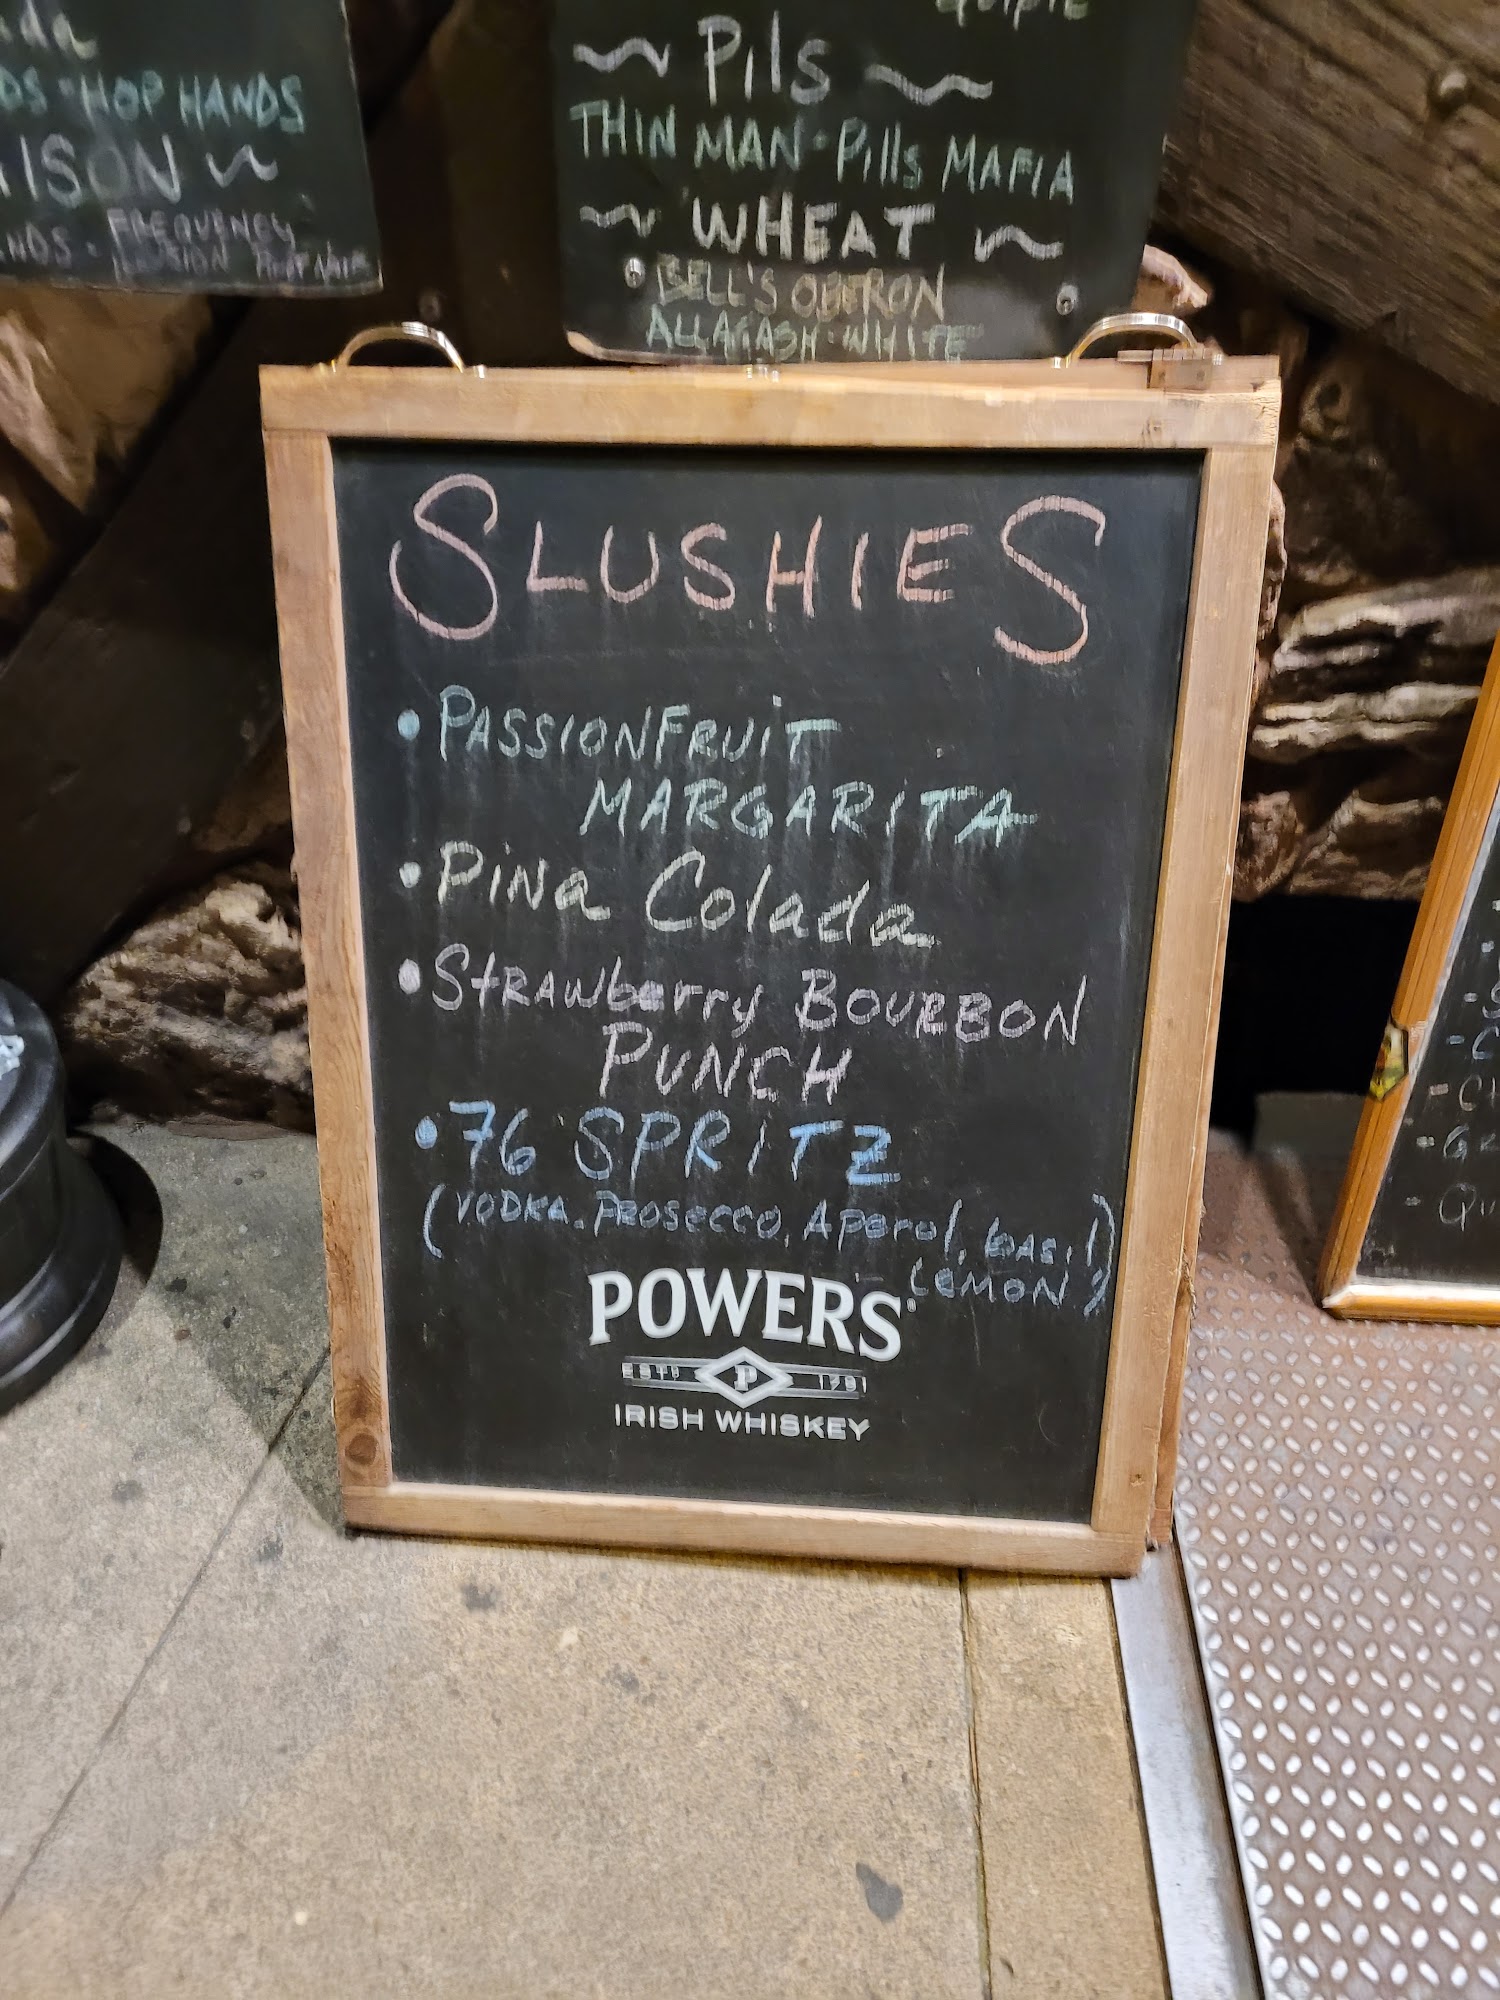 HOP HANDS
FREQUENCY
~ Pils ~
THIN MAN · Pills MAFIA
~ WHEAT ~
BELL'S OBERON
ALLAGASH · WHITE
SLUSHIES
• PASSIONFRUIT
MARGARITA
• PINA Colada
• STRAWberry BOURBON
PUNCH
• 76 SPRITZ
(VODKA. PROSECCO, APEROL, basil)
LEMON)
POWERS®
ESTD P 1791
IRISH WHISKEY